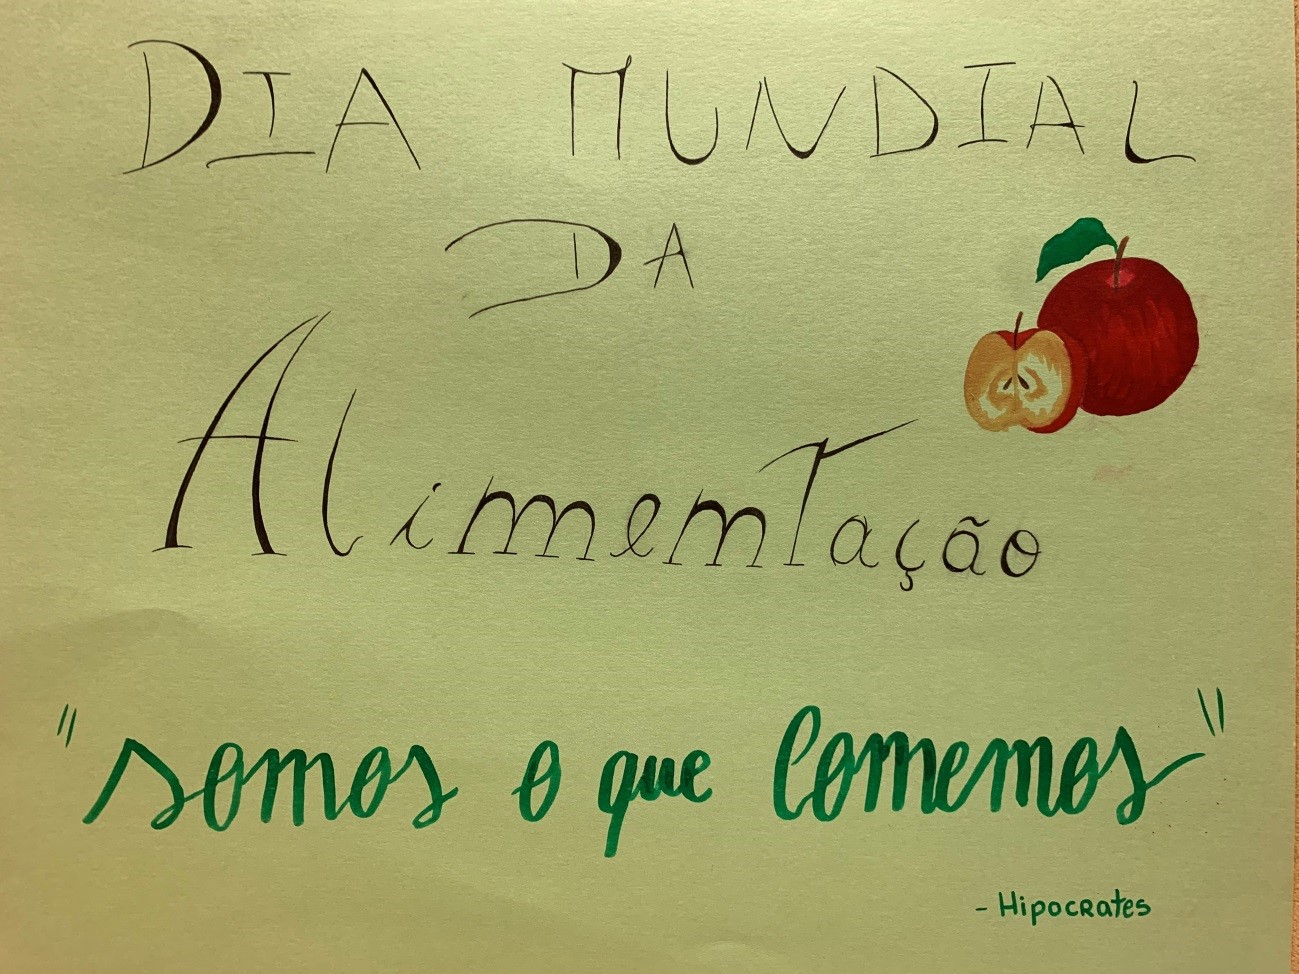 DIA MUNDIAL
DA
Alimentação
"somos o que Comemos"
- Hipocrates